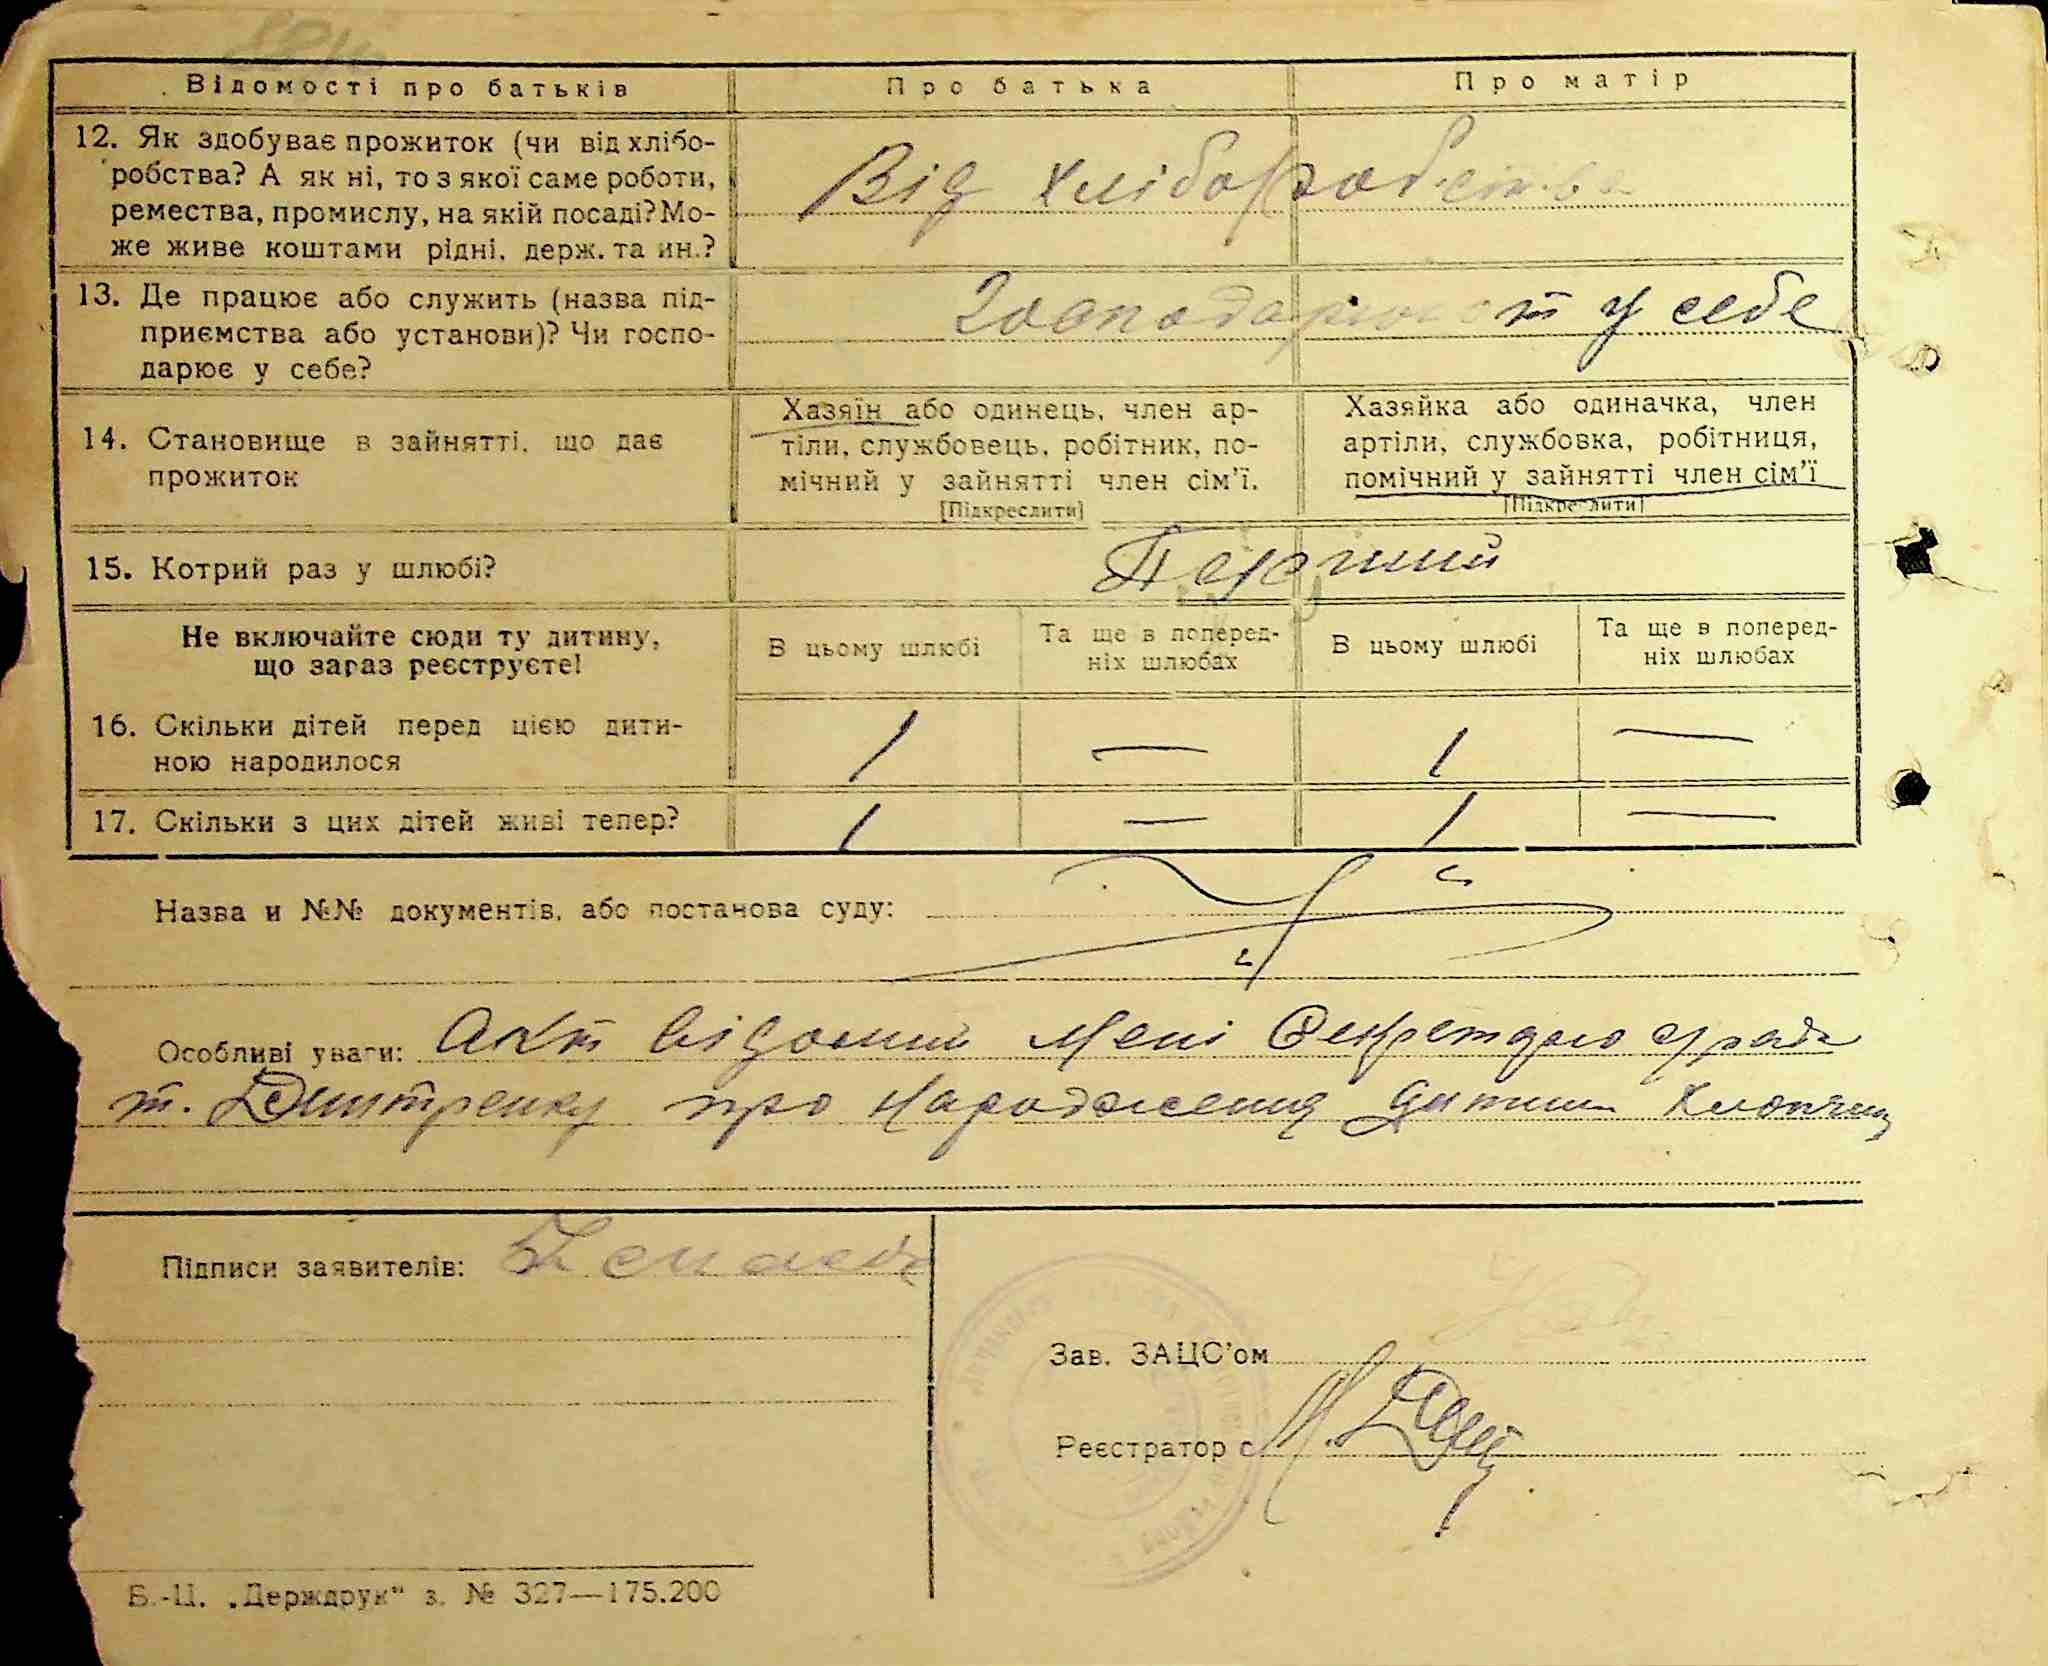 Відомості про батьків
Про батька
Про матір
12. Як здобуває прожиток (чи від хлібо-
робства? А як ні, то з якої саме роботи,
ремества, промислу, на якій посаді? Мо-
же живе коштами рідні, держ. та ин.?
Від хліборобства
13. Де працює або служить (назва під-
приємства або установи)? Чи госпо-
дарює у себе?
у себе
14. Становище в зайнятті, що дає
прожиток
Хазяїн або одинець, член ар-
тіли, службовець, робітник, по-
мічний у зайнятті член сім'ї.
[Підкреслити]
Хазяйка або одиначка, член
артіли, службовка, робітниця,
помічний у зайнятті член сім'ї
[Підкреслити]
15. Котрий раз у шлюбі?
Перший
Не включайте сюди ту дитину,
що зараз реєструєте!
В цьому шлюбі
Та ще в поперед-
ніх шлюбах
В цьому шлюбі
Та ще в поперед-
ніх шлюбах
16. Скільки дітей перед цією дити-
ною народилося
1 — 1 —
17. Скільки з цих дітей живі тепер?
1 — 1 —
Назва и №№ документів, або постанова суду:
Особливі уваги: Акт відомий мені Секретарю
т. Дмитренку про народження дитини
Підписи заявителів:
Зав. ЗАЦС'ом
Реєстратор
Б.-Ц. „Держдрук" з. № 327—175.200